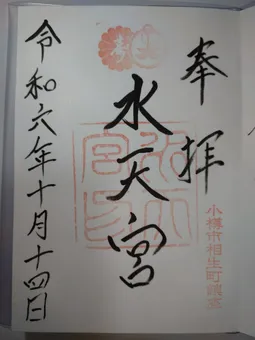 奉拝
小樽市相生町鎮座
水天宮
令和六年十月十四日